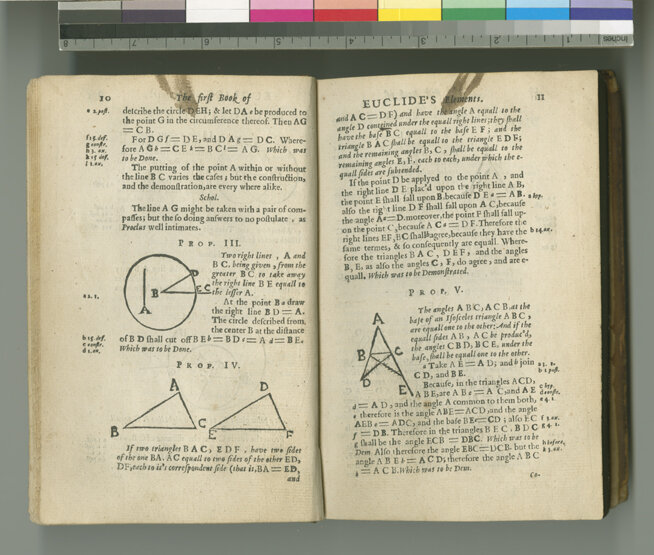 8
10 The first Book of
e 2. post.
describe the circle DEH; & let DA e be produced to
the point G in the circumference thereof. Then AG
= CB.
f 15. def.
For DG f = DE, and DA g = DC. Where-
g constr.
h 3. ax.
fore AG h = CE k = BC l = AG. Which was
k 15 def.
l 1. ax.
to be Done.
The putting of the point A within or without
the line BC varies the cases; but the construction,
and the demonstration, are every where alike.
Schol.
The line AG might be taken with a pair of com-
passes; but the so doing answers to no postulate, as
Proclus well intimates.
PROP. III.
A
B
D
E C
Two right lines, A and
BC. being given, from the
greater BC to take away
the right line BE equall to
the lesser A.
a 2. 1.
At the point B a draw
the right line BD = A.
The circle described from
the center B at the distance
b 15 def.
of BD shall cut off BE b = BD c = A d = BE.
c constr.
d 1. ax.
Which was to be Done.
PROP. IV.
A
D
B C E F
If two triangles BAC, EDF, have two sides
of the one BA. AC equall to two sides of the other ED,
DF, each to it's correspondent side (that is, BA = ED,
and
EUCLIDE'S Elements. 11
and AC = DF) and have the angle A equall to the
angle D contained under the equall right lines; they shall
have the base BC equall to the base EF; and the
triangle BAC shall be equall to the triangle EDF;
and the remaining angles B, C, shall be equall to the
remaining angles E, F, each to each, under which the e-
quall sides are subtended.
If the point D be applyed to the point A, and
the right line DE plac'd upon the right line AB,
the point E shall fall upon B, because DE a = AB.
a hyp.
also the right line DF shall fall upon AC, because
the angle A a = D. moreover, the point F shall fall up-
on the point C, because AC a = DF. Therefore the
right lines EF, BC shall agree, because they have the
b 14. ax.
same termes, & so consequently are equall. Where-
fore the triangles BAC, DEF, and the angles
B, E, as also the angles C, F, do agree, and are e-
quall. Which was to be Demonstrated.
PROP. V.
A
B C
D E
The angles ABC, ACB at the
base of an Isosceles triangle ABC,
are equall one to the other: And if the
equall sides AB, AC be produc'd,
the angles CBD, BCE, under the
base, shall be equall one to the other.
a Take AE = AD; and b join
a 3. 1.
b 1 post.
CD, and BE.
Because, in the triangles ACD,
c hyp.
ABE, are AB c = AC, and AE
d constr.
d = AD, and the angle A common to them both,
e 4. 1.
e therefore is the angle ABE = ACD, and the angle
AEB e = ADC, and the base BE = CD; also EC
f 3. ax.
f = DB. Therefore in the triangles BEC, BDC
g 4. 1.
g shall be the angle ECB = DBC. Which was to be
Dem. Also therefore the angle EBC = DCB. but the
h before.
angle ABE h = ACD; therefore the angle ABC
k 3. ax.
k = ACB. Which was to be Dem.
Co-